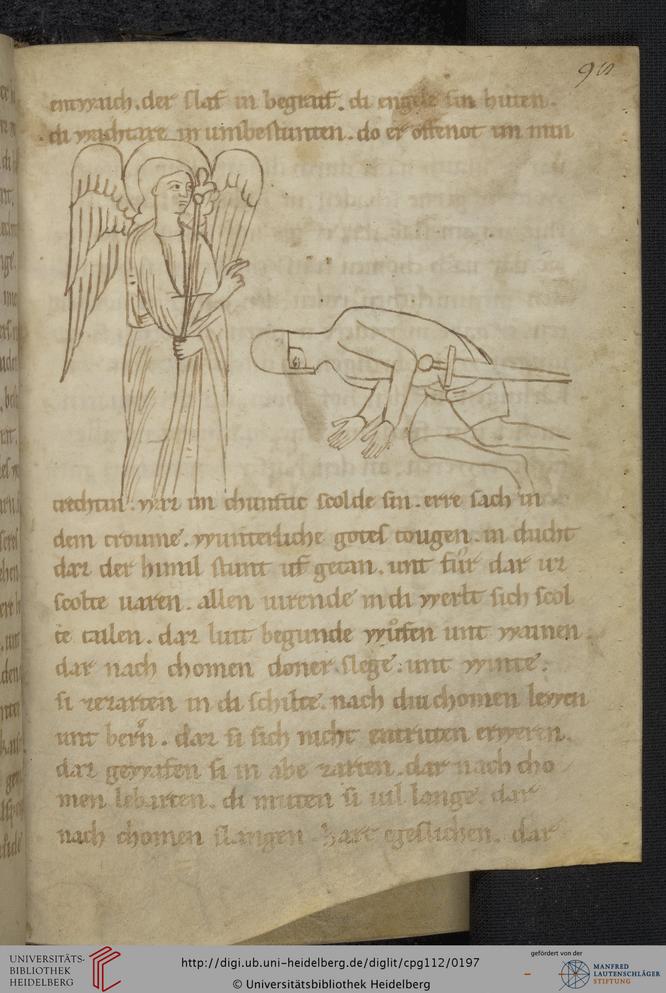 entwaich. der slaf in begraif. di engele sin huten.
di wachtare in umbestunten. do er offenot im min
trechtin. waz im chunftic scolde sin. erre sach in
dem troume. wunterliche gotes tougen. in ducht
daz der himil stunt uf getan. unt fůr dar uz
scolte uaren. allen uirende in di werlt sich scol
te tailen. daz lutt begunde wůfen unt wainen
dar nach chomen doner slege. unt winte.
si zezarten in di schilte. nach diu chomen lewen
unt bern. daz si sich nicht entriten erweren.
daz gewafen si in abe zarten. dar nach cho
men lebarten. di muten si uil lange. dar
nach chomen slangen hart egeslichen. dar
UNIVERSITÄTS-
BIBLIOTHEK
HEIDELBERG
http://digi.ub.uni-heidelberg.de/diglit/cpg112/0197
© Universitätsbibliothek Heidelberg
gefördert von der
MANFRED
LAUTENSCHLÄGER
STIFTUNG